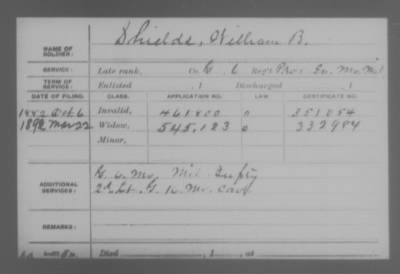 Shields, William B.
NAME OF SOLDIER:
SERVICE: Late rank, Co. G, 6 Reg't Prov. En. Mo. Mil
TERM OF SERVICE: Enlisted , 1 Discharged , 1
DATE OF FILING. CLASS. APPLICATION NO. LAW. CERTIFICATE NO.
1882 Oct 6 Invalid, 461800 351054
1892 Mar 22 Widow, 545,123 332984
Minor,
ADDITIONAL SERVICES:
G. 6. Mo. Mil. Infty
2d Lt. G. 12. Mo. Cav.
REMARKS:
Died , 1 , at